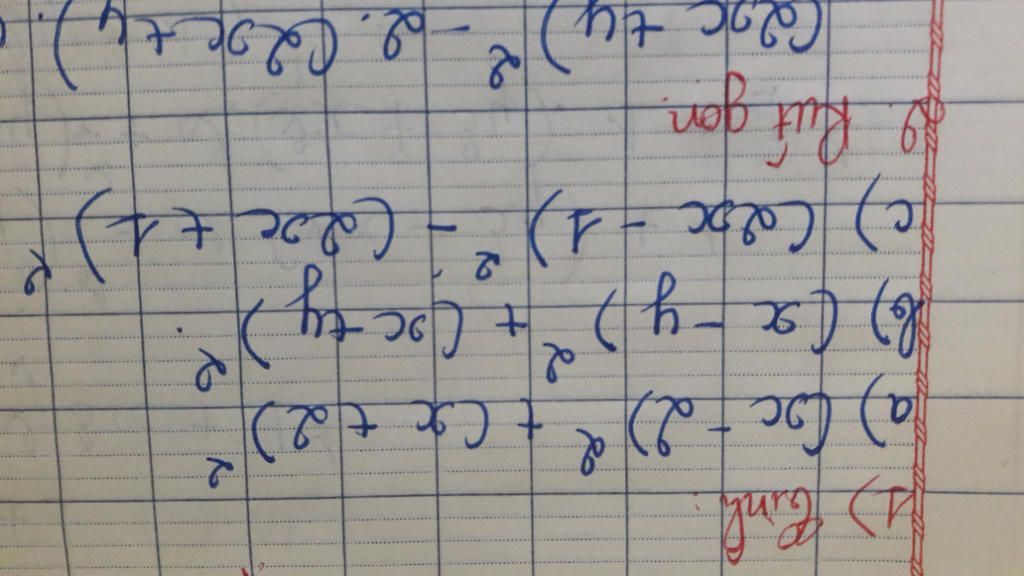 1) Tính:
a) (x - 2)² + (x + 2)²
b) (x - y)² + (x + y)².
c) (2x - 1)² - (2x + 1)²
2. Rút gọn
(2x + y)² - 2. (2x + y).